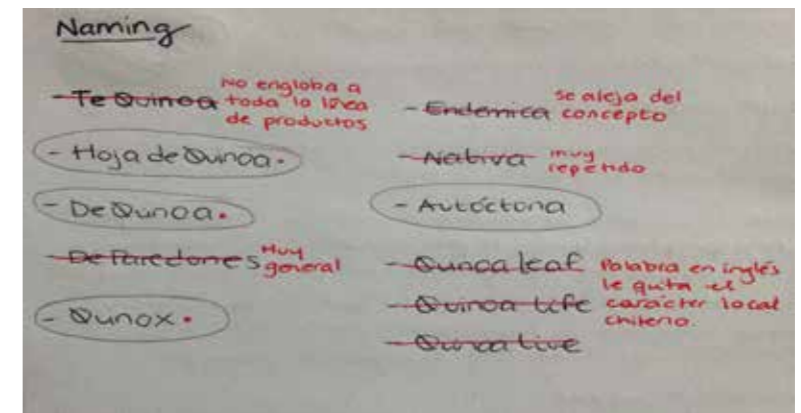 Naming
- Te Quinoa
No engloba a
toda la línea
de productos
- Hoja de Quinoa.
- De Qunoa.
- De Paredones
Muy
general
- Qunox.
- Endemica
se aleja del
concepto
- Nativa
muy
repetido
- Autóctona
- Qunoa leaf
- Quinoa Life
- Qunoa Live
Palabra en inglés
le quita el
carácter local
chileno.